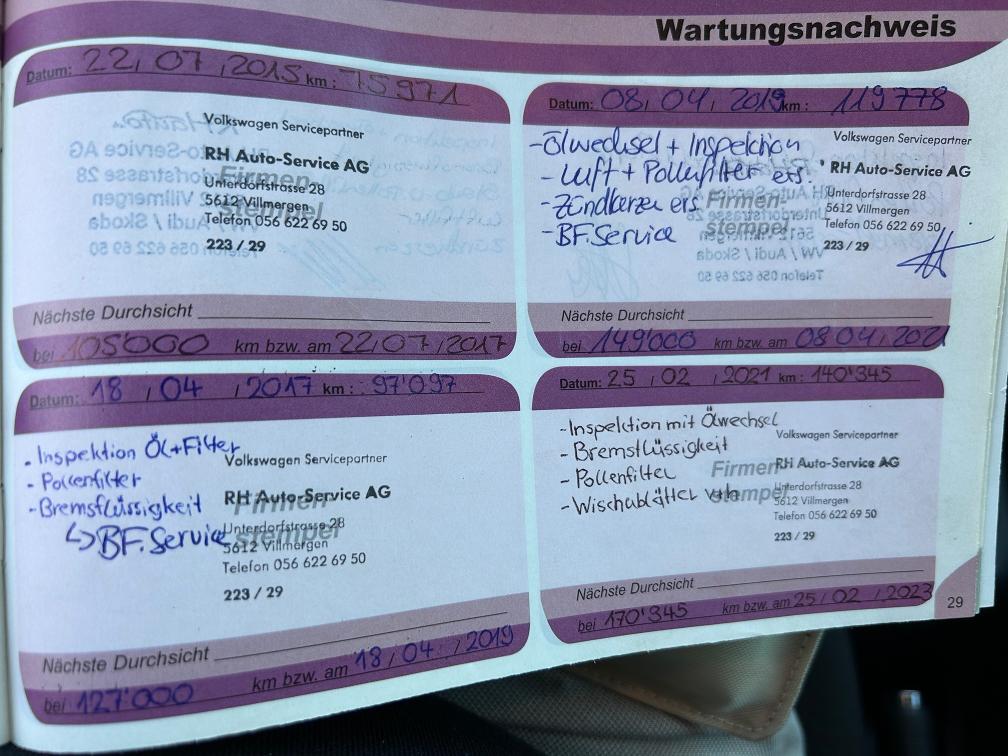 Wartungsnachweis
Datum: 22 , 07 , 2015 km : 75971
Volkswagen Servicepartner
RH Auto-Service AG
Firmen-
Unterdorfstrasse 28
stempel
5612 Villmergen
Telefon 056 622 69 50
223 / 29
Nächste Durchsicht
bei 105'000 km bzw. am 22 / 07 / 2017
Datum: 18 , 04 , 2017 km : 97'097
- Inspektion Öl+Filter
- Pollenfilter
- Bremsflüssigkeit
↳ BF.Service
Volkswagen Servicepartner
RH Auto-Service AG
Firmen-
Unterdorfstrasse 28
stempel
5612 Villmergen
Telefon 056 622 69 50
223 / 29
Nächste Durchsicht
bei 127'000 km bzw. am 18 / 04 / 2019
Datum: 08 , 04 , 2019 km : 119778
- Ölwechsel + Inspektion
- Luft + Pollenfilter ers.
- Zündkerzen ers.
- BF.Service
Volkswagen Servicepartner
RH Auto-Service AG
Firmen-
Unterdorfstrasse 28
stempel
5612 Villmergen
Telefon 056 622 69 50
223 / 29
Nächste Durchsicht
bei 149'000 km bzw. am 08 04 / 2021
Datum: 25 , 02 , 2021 km : 140'345
- Inspektion mit Ölwechsel
- Bremsflüssigkeit
- Pollenfilter
- Wischablätter
Volkswagen Servicepartner
Firmen-
RH Auto-Service AG
stempel
Unterdorfstrasse 28
5612 Villmergen
Telefon 056 622 69 50
223 / 29
Nächste Durchsicht
bei 170'345 km bzw. am 25 / 02 / 2023
29